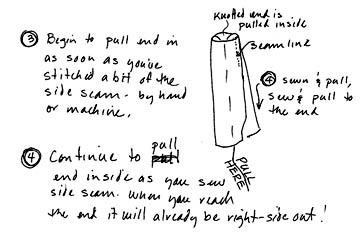 Knotted end is
pulled inside
③ Begin to pull end in
as soon as you've
stitched a bit of the
side seam - by hand
or machine.
seamline
④ sewn & pull,
sew & pull to
the end
PULL
HERE
④ Continue to pull
end inside as you sew
side seam. When you reach
the end it will already be right-side out!